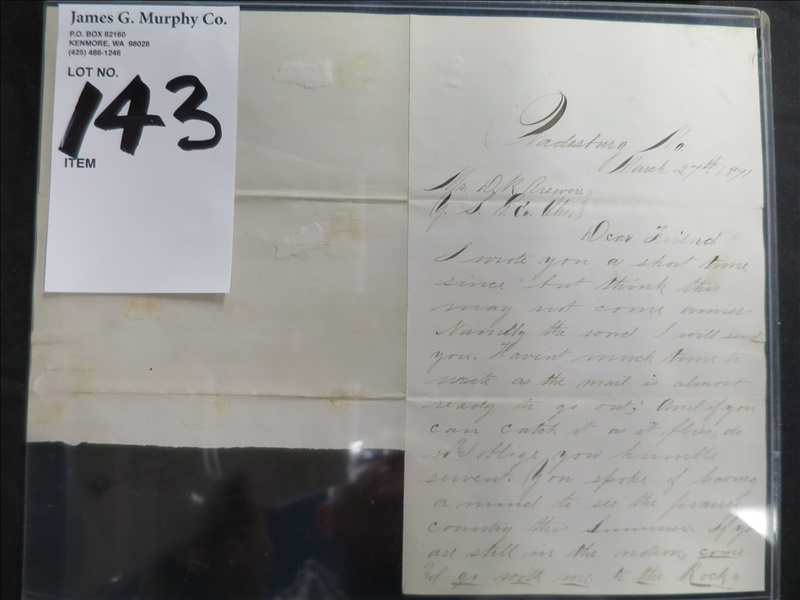 James G. Murphy Co.
P.O. BOX 82160
KENMORE, WA 98028
(425) 486-1246
LOT NO.
143
ITEM
Wadesburg Mo.
March 27th 1871
Mr. D. R.
Co. Ohio
Dear Friend
I wrote you a short time
since but think this
may not come amiss
Namelly the song I will send
you. Havent much time to
write as the mail is almost
ready to go out; And if you
can catch it as it flies, do
so & oblige you humble
servent. You spoke of having
a mind to see the prairie
country this Summer. If you
are still in the notion, come
& go with me to the Rocky